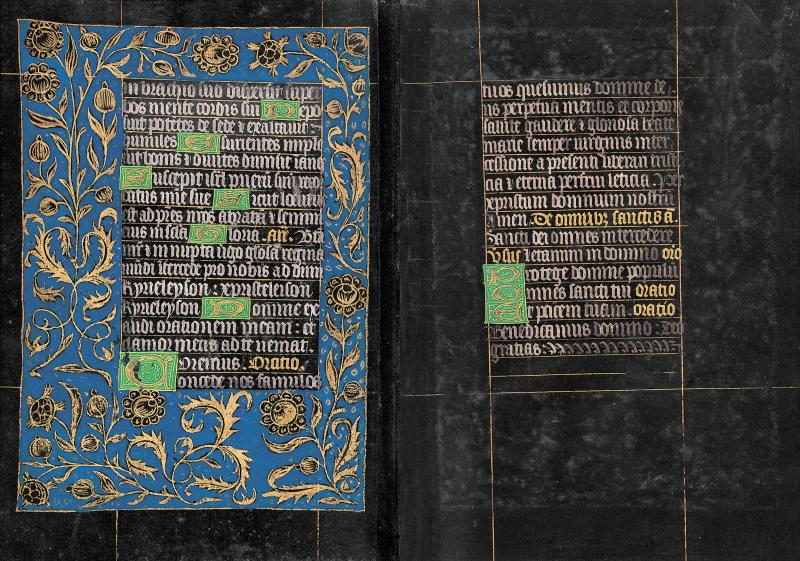 in brachio suo dispersit supe
bos mente cordis sui Depo
suit potētes de sede ⁊ exaltauit
humiles Esurientes imple
uit bonis ⁊ diuites dimisit iane
Suscepit isrl puerū suū reco
datus mīe sue Sicut locut
est ad pres nros abrahā ⁊ semini
eius in scla Gloria. Añ. Bta
mr̄ ⁊ innupta ṽgo glōsa regina
mūdi ītercede pro nobis ad dnm̄
Kyrieleyson: xpristeleison
Kyrieleyson Domine ex
audi orationem meam: et
clamor meus ad te veniat.
Oremus. Oratio.
Concede nos famulos
tuos quesumus domine de,
us perpetua mentis et corporis
sanite gaudere ⁊ gloriosa beate
marie semper uirginis inter,
cessione a presenti liberari tristi
cia ⁊ eterna perfrui leticia. Per
xpristum dominum nostrū
Amen. De omnibꝫ sanctis a.
Sancti dei omnes intercedere
Vsus Letamini in domino oro
Protege domine populū
Omnes sancti tui oratio
Et pacem tuam. oratio
Benedicamus domino: Deo
gratias: